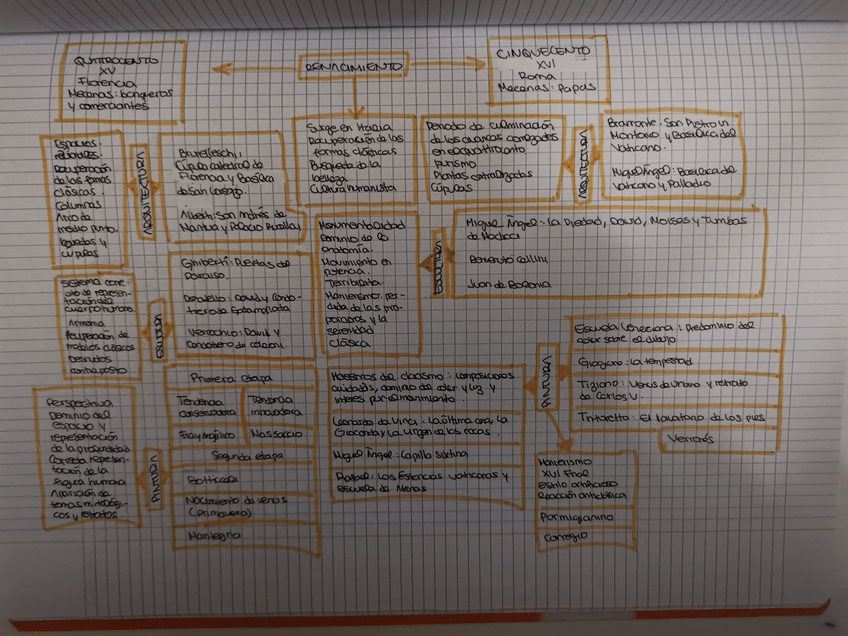 QUATTROCENTO
XV
Florencia
Mecenas: banqueros
y comerciantes
RENACIMIENTO
CINQUECENTO
XVI
Roma
Mecenas: Papas
Surge en Italia
Recuperación de las
formas clásicas
Búsqueda de la
belleza
Cultura humanista
Espacios
Recuperación
de las formas
clásicas.
Columnas
Arco de
medio punto.
bóvedas y
cúpulas
ARQUITECTURA
Brunelleschi:
Cúpula catedral de
Florencia y Basílica
de San Lorenzo.
Alberti: San Andrés de
Mantua y Palacio Rucellai
Periodo de culminación
de los avances
en el quattrocento
purismo
Plantas centralizadas
Cúpulas
ARQUITECTURA
Bramante: San Pietro in
Montorio y Basílica del
Vaticano.
Miguel Ángel: Basílica del
Vaticano y Palladio
Sistema
de represen-
tación del
cuerpo humano.
Armonía
Recuperación de
modelos clásicos
Desnudos
contraposto
ESCULTURA
Ghiberti: Puertas del
Paraíso.
Donatello: David y Condo-
tiero de Gattamelata
Verrochio: David y
Condotiero de Colleoni
Monumentalidad
Dominio de la
anatomía.
Movimiento en
potencia.
Terribilitá.
Manierismo: per-
dida de las pro-
porciones y la
serenidad
clásica
ESCULTURA
Miguel Ángel: La Piedad, David, Moisés y Tumbas
de Medici
Benvenuto Cellini
Juan de Bolonia
Perspectiva
Dominio del
espacio y
representación
de la profundidad
Correcta represen-
tación de la
figura humana
Aparición de
temas mitológi-
cos y retratos.
PINTURA
Primera etapa
Tendencia
conservadora
Tendencia
innovadora
Fray Angélico
Massaccio
Segunda etapa
Botticelli
Nacimiento de venus
(primavera)
Mantegna
Maestros del clasismo: composiciones
cuidadas, dominio de color y luz y
interés por el movimiento.
Leonardo da Vinci: La última cena, la
Gioconda y la Virgen de las rocas.
Miguel Ángel: Capilla sixtina
Rafael: Las Estancias vaticanas y
Escuela de Atenas
PINTURA
Escuela veneciana: Predominio del
color sobre el dibujo
Giorgione: La tempestad
Tiziano: Venus de Urbino y retrato
de Carlos V.
Tintoretto: El lavatorio de los pies
Veronés
Manierismo
XVI Final
Estilo artificioso
Reacción anticlásica
Parmigianino
Correggio